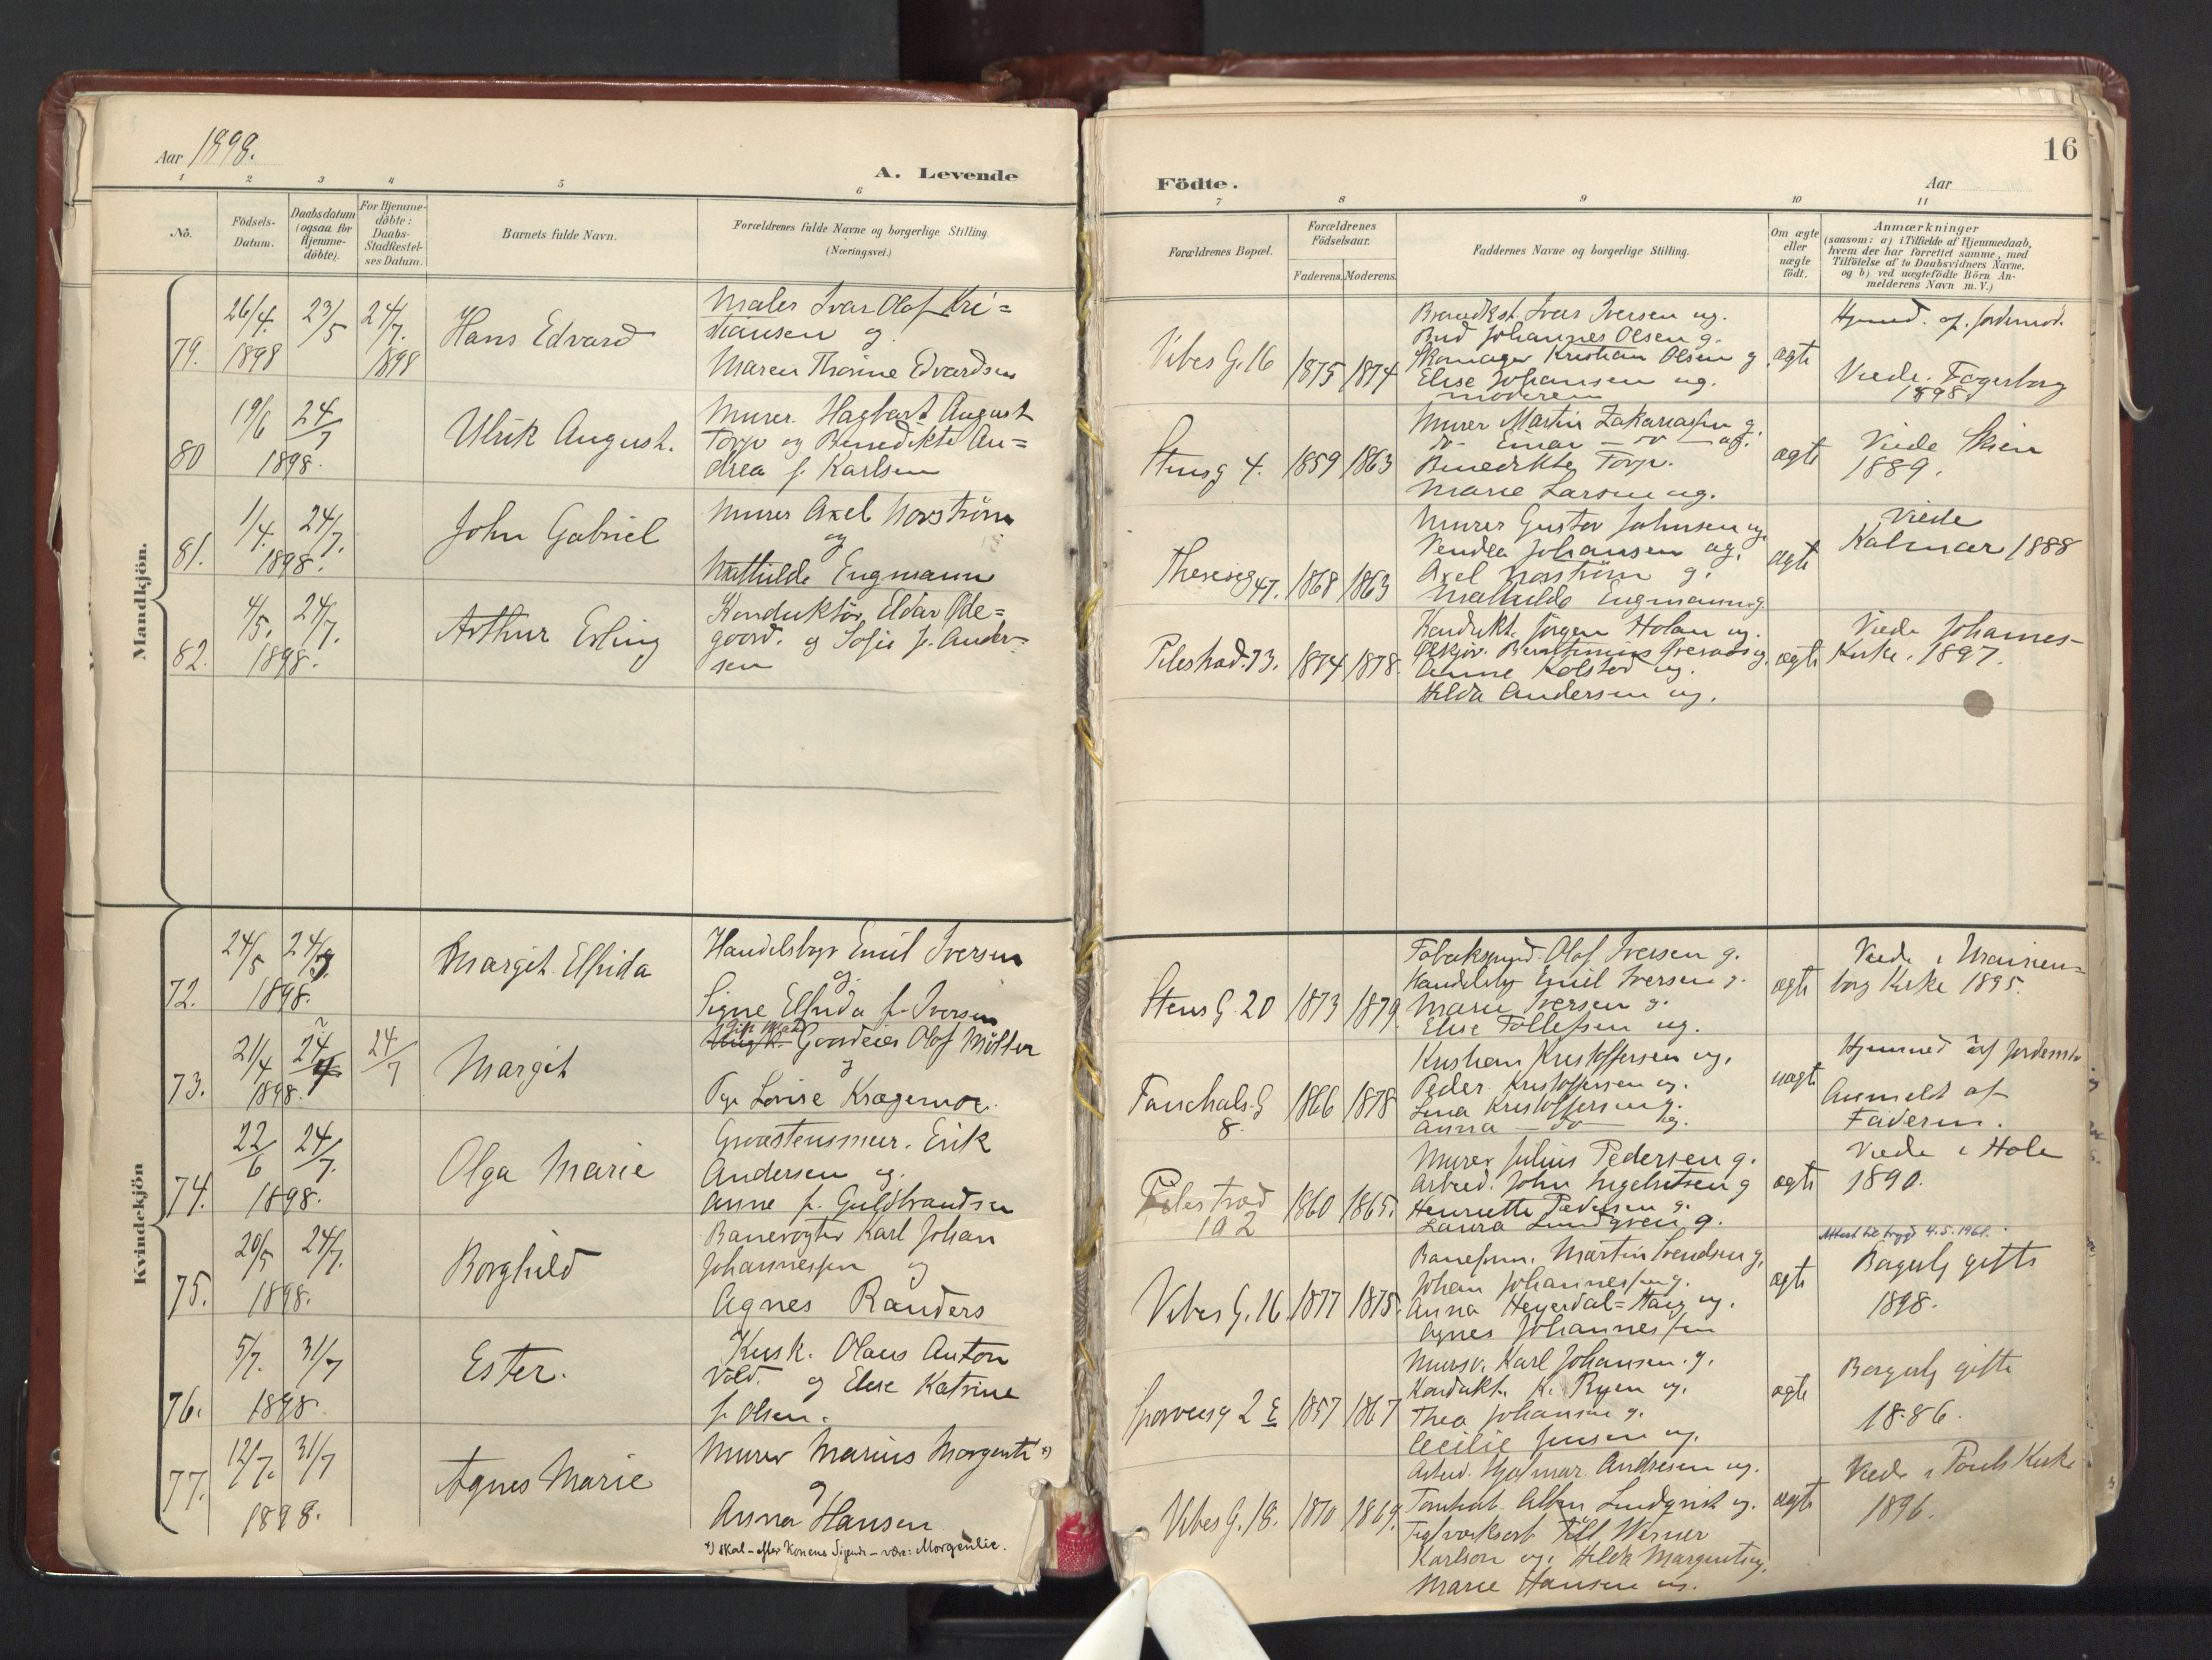 Aar 1898.
A. Levende
1 2 3 4 5 6
No.
Födsels-
Datum.
Daabsdatum
(ogsaa for
Hjemme-
döbte).
For Hjemme-
döbte:
Daabs-
Stadfæstel-
ses Datum.
Barnets fulde Navn.
Forældrenes fulde Navne og borgerlige Stilling.
(Næringsvei.)
Mandkjön.
79.
26/4. 1898
23/5
24/7. 1898
Hans Edvard
Maler Ivar Olaf Kri=
stiansen og
Maren Thorine Edvardsen
80
19/6 24/7
1898.
Ulrik August.
Murer Hagbart August
Torp og Benedikte An=
drea f. Karlsen
81.
1/4. 24/7.
1898.
John Gabriel
Murer Axel Norström
og
Mathilde Engmann
82.
4/5. 24/7.
1898.
Arthur Erling
Konduktör Eldar Öde=
goord. og Sofie f. Ander=
sen
Kvindekjön
72.
24/5 24/7.
1898.
Margit Elfrida
Handelsbgt Emil Iversen
og
Signe Elfrida f. Iversen
73.
21/4 24
1898.
24/7
Margit
Gift Mand
Gaardeier Olaf Möller
og
Pge Lovise Kragemoe.
74.
22/6 24/7.
1898.
Olga Marie
Graastensmur. Erik
Andersen og.
Anne f. Guldbrandsen
75.
20/5 24/7.
1898.
Borghild
Banevogter Karl Johan
Johannessen og
Agnes Randers
76.
5/7. 31/7
1898.
Ester.
Kusk. Olaus Anton
Vold. og Elise Katrine
f. Olsen.
77.
12/7. 31/7
1898.
Agnes Marie
Murer Marius Morgenti *)
og
Anna Hansen
*) skal - efter Konens Sigende - være: Morgenlie.
Födte.
Aar
16
7 8 9 10 11
Forældrenes Bopæl.
Forældrenes
Födselsaar.
Faderens. Moderens.
Faddernes Navne og borgerlige Stilling.
Om ægte
eller
uægte
födt.
Anmærkninger
(saasom: a) i Tilfælde af Hjemmedaab,
hvem der har forrettet samme, med
Tilföielse af to Daabsvidners Navne.
og b) ved uægtefödte Börn An-
melderens Navn m. V.)
Vibes G. 16
1875 1874
Ivar Iversen ug.
Bud Johannes Olsen g.
Skomager Kristian Olsen g
Elise Johansen ug.
moderen
ægte
Hjemmed. af. Jordemod.
Viede. Fagerborg
1898.
Stensg 4.
1859 1863
Murer Martin Zakariassen g.
do- Einar - do - ug.
Benedikte Torp.
Marie Larsen ug.
ægte
Viede Skien
1889.
Theresesg 47.
1868 1863
Murer Gustav Johnsen ug
Vendla Johansen ug.
Axel Norström g.
Mathilde Engmann g.
ægte
Viede
Kalmar 1888
Pilestræd. 73.
1874 1878.
Kondukt. Jörgen Holan ug.
Anne Kolstad ug.
Hilda Andersen ug.
ægte
Viede Johannes-
Kirke. 1897.
Stens G. 20
1873 1879.
Olaf Iversen g.
Handelsbg Emil Iversen g.
Marie Iversen g.
Elise Tollefsen ug.
ægte
Viede i Uranien=
borg Kirke 1895.
Fauchals. G
8.
1866 1878
Kristian Kristoffersen ug.
Peder Kristoffersen ug.
Lina Kristoffersen g.
Anna - do - ug.
uægte
Hjemmed af Jordemor
Anmeldt af
Faderen.
Pilestræd
102
1860 1865.
Murer Julius Pedersen g.
Arbeid. John Ingebretsen g
Henriette Pedersen g.
Laura Lundgren g.
ægte
Viede i Hole
1890.
Attest til trygd 4.5.1961.
Vibes G. 16.
1877 1875.
Martin Svendsen g.
Johan Johannessen g.
Anna Heyerdal=Haug ug.
Agnes Johannessen
ægte
Borgerlg gifte
1898.
Sporveisg 2 E
1857 1867
Mursv. Karl Johansen. g.
Kondukt. K. Ryen ug.
Thea Johansen g.
Cecilie Jensen ug.
ægte
Borgerlg gifte
1886.
Vibes G. 18.
1870 1869.
Arbeid. Hjalmar Andresen ug.
Albin Lindqvist ug.
Teglværksarb Till Werner
Karlson ug. Hilda Margentug.
Marie Hansen ug.
ægte
Viede i Pauls Kirke
1896.